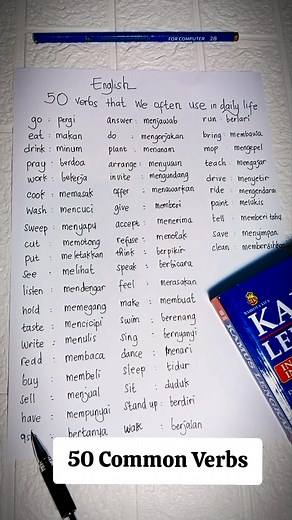 FOR COMPUTER 2B
English
50 verbs that we often use in daily life
go : pergi
eat : makan
drink : minum
pray : berdoa
work : bekerja
cook : memasak
wash : mencuci
sweep : menyapu
cut : memotong
put : meletakkan
see : melihat
listen : mendengar
hold : memegang
taste : mencicipi
write : menulis
read : membaca
buy : membeli
sell : menjual
have : mempunyai
bertanya
answer : menjawab
do : mengerjakan
plant : menanam
arrange : menyusun
invite : mengundang
offer : menawarkan
give : memberi
accept : menerima
refuse : menolak
think : berpikir
speak : berbicara
feel : merasakan
make : membuat
swim : berenang
sing : bernyanyi
dance : menari
sleep : tidur
sit : duduk
stand up : berdiri
walk : berjalan
run : berlari
bring : membawa
mop : mengepel
teach : mengajar
drive : menyetir
ride : mengendarai
paint : melukis
tell : memberi tahu
save : menyimpan
clean : membersihkan
KA
LE
IN
50 Common Verbs